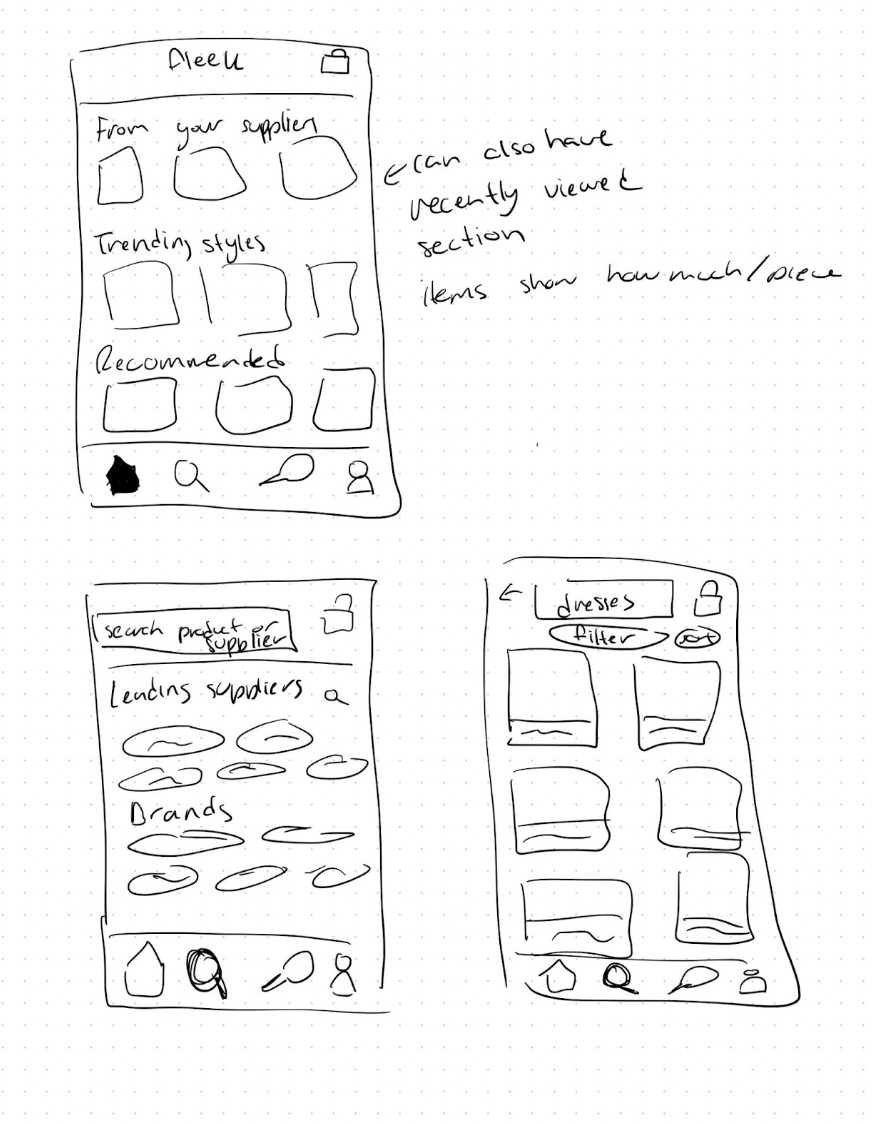 Fleek
From your suppliers
Trending styles
Recommended
can also have
recently viewed
section
items show how much/piece
search product or
supplier
Leading suppliers
Brands
dresses
filter
sort